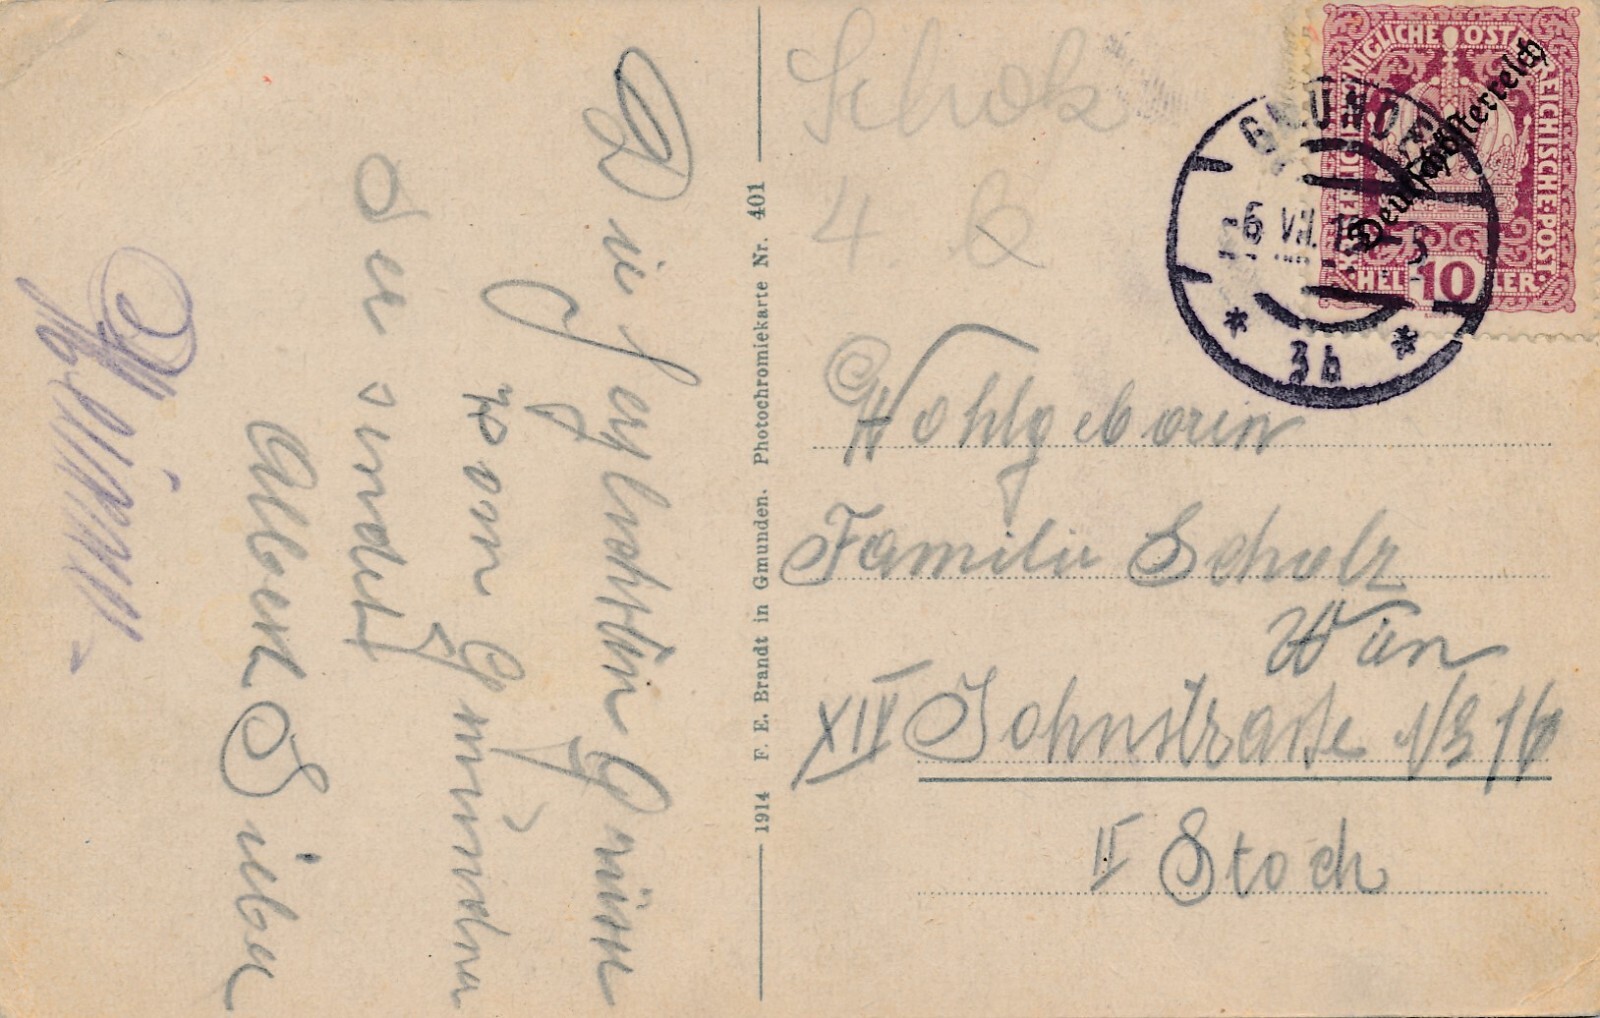 Die herzlichsten Grüsse
von Gmunden
sendet
Albert Sieber
1914 F. E. Brandt in Gmunden. Photochromiekarte Nr. 401
4.
KAISERLICHE KÖNIGLICHE ÖSTERREICHISCHE POST
Deutschösterreich
HELLER 10
GMUNDEN
6 VII. 19
* 3b *
Wohlgeboren
Familie Scholz
Wien
XIV Johnstrasse 1/3 16
II Stock